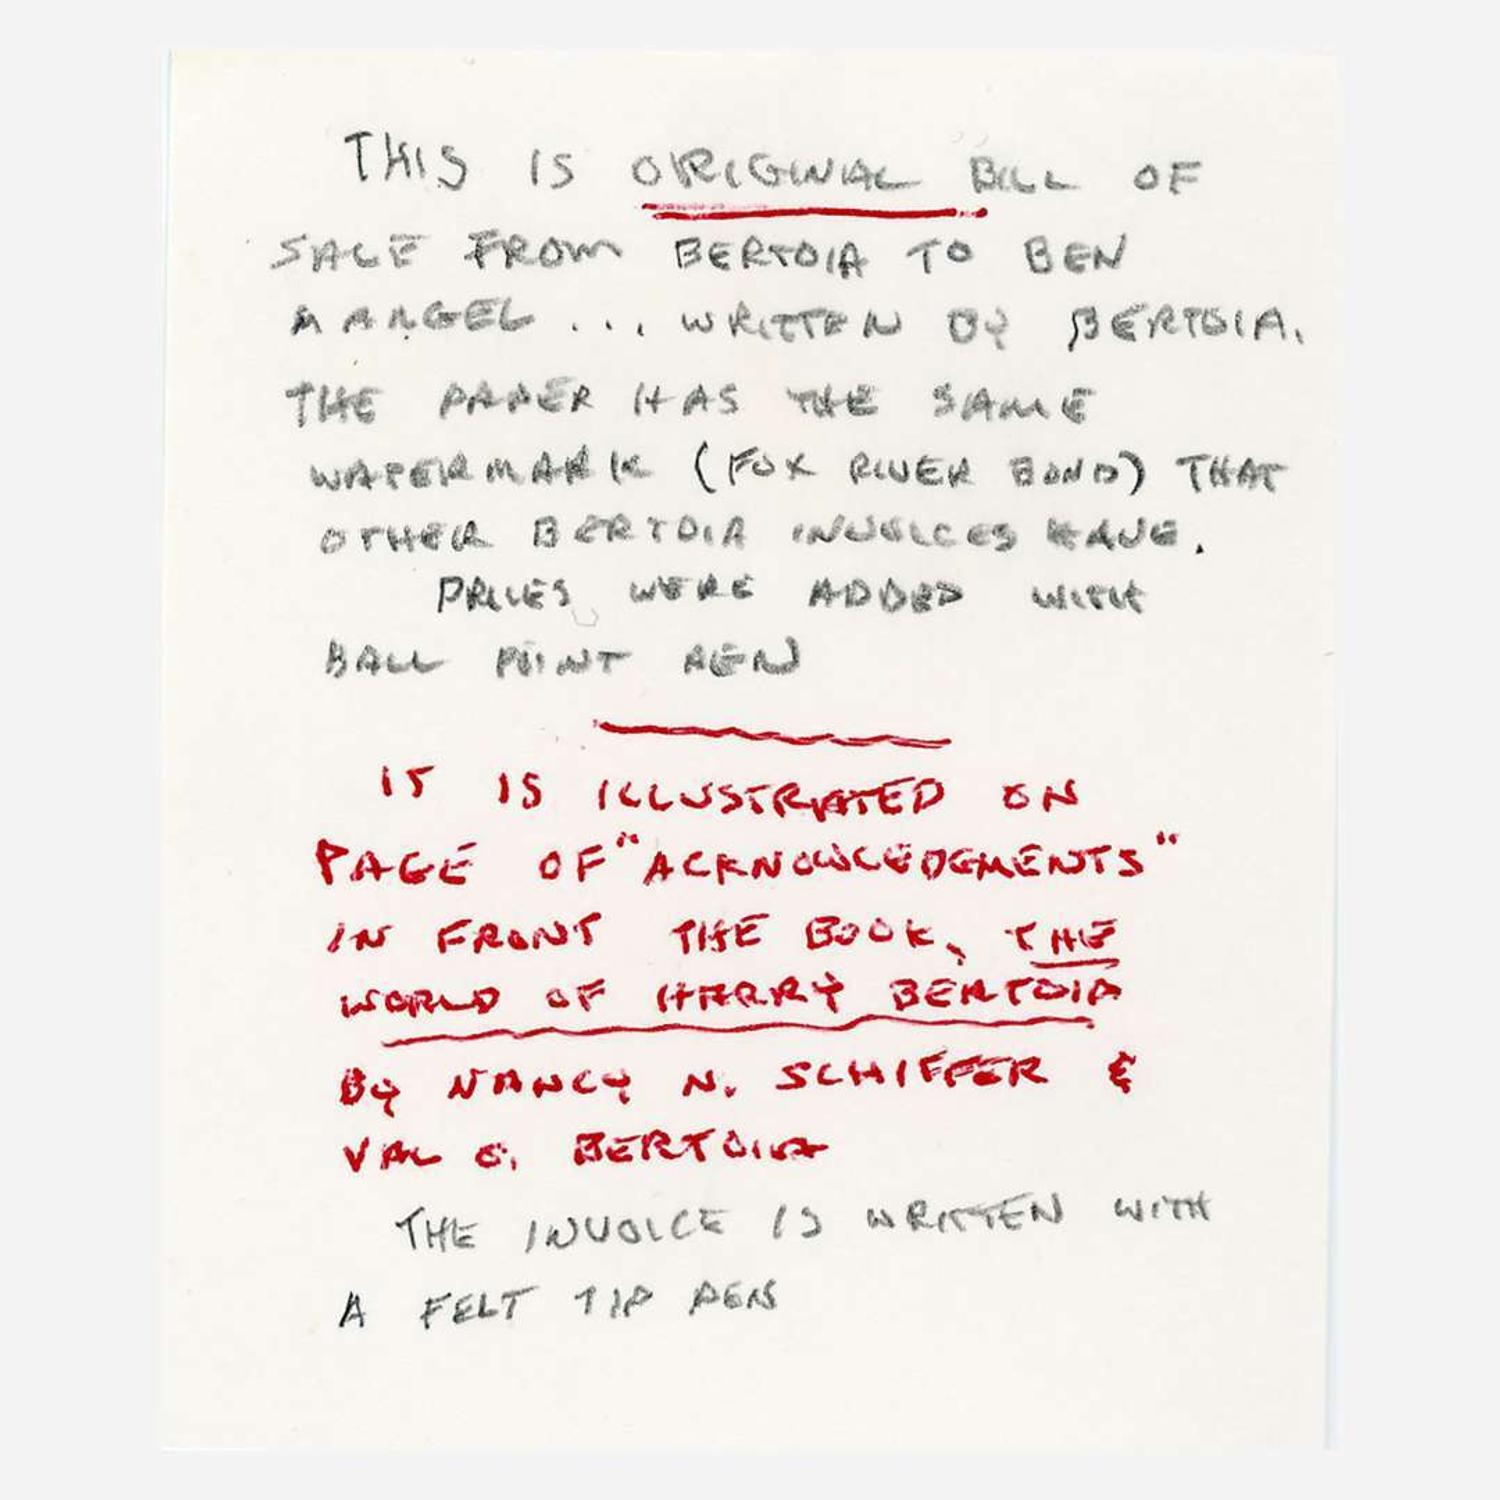 THIS IS ORIGINAL BILL OF
SALE FROM BERTOIA TO BEN
MANGEL ... WRITTEN BY BERTOIA.
THE PAPER HAS THE SAME
WATERMARK (FOX RIVER BOND) THAT
OTHER BERTOIA INVOICES HAVE.
PRICES WERE ADDED WITH
BALL POINT PEN
IT IS ILLUSTRATED ON
PAGE OF "ACKNOWLEDGMENTS"
IN FRONT THE BOOK, THE
WORLD OF HARRY BERTOIA
BY NANCY N. SCHIFFER &
VAL O. BERTOIA
THE INVOICE IS WRITTEN WITH
A FELT TIP PEN